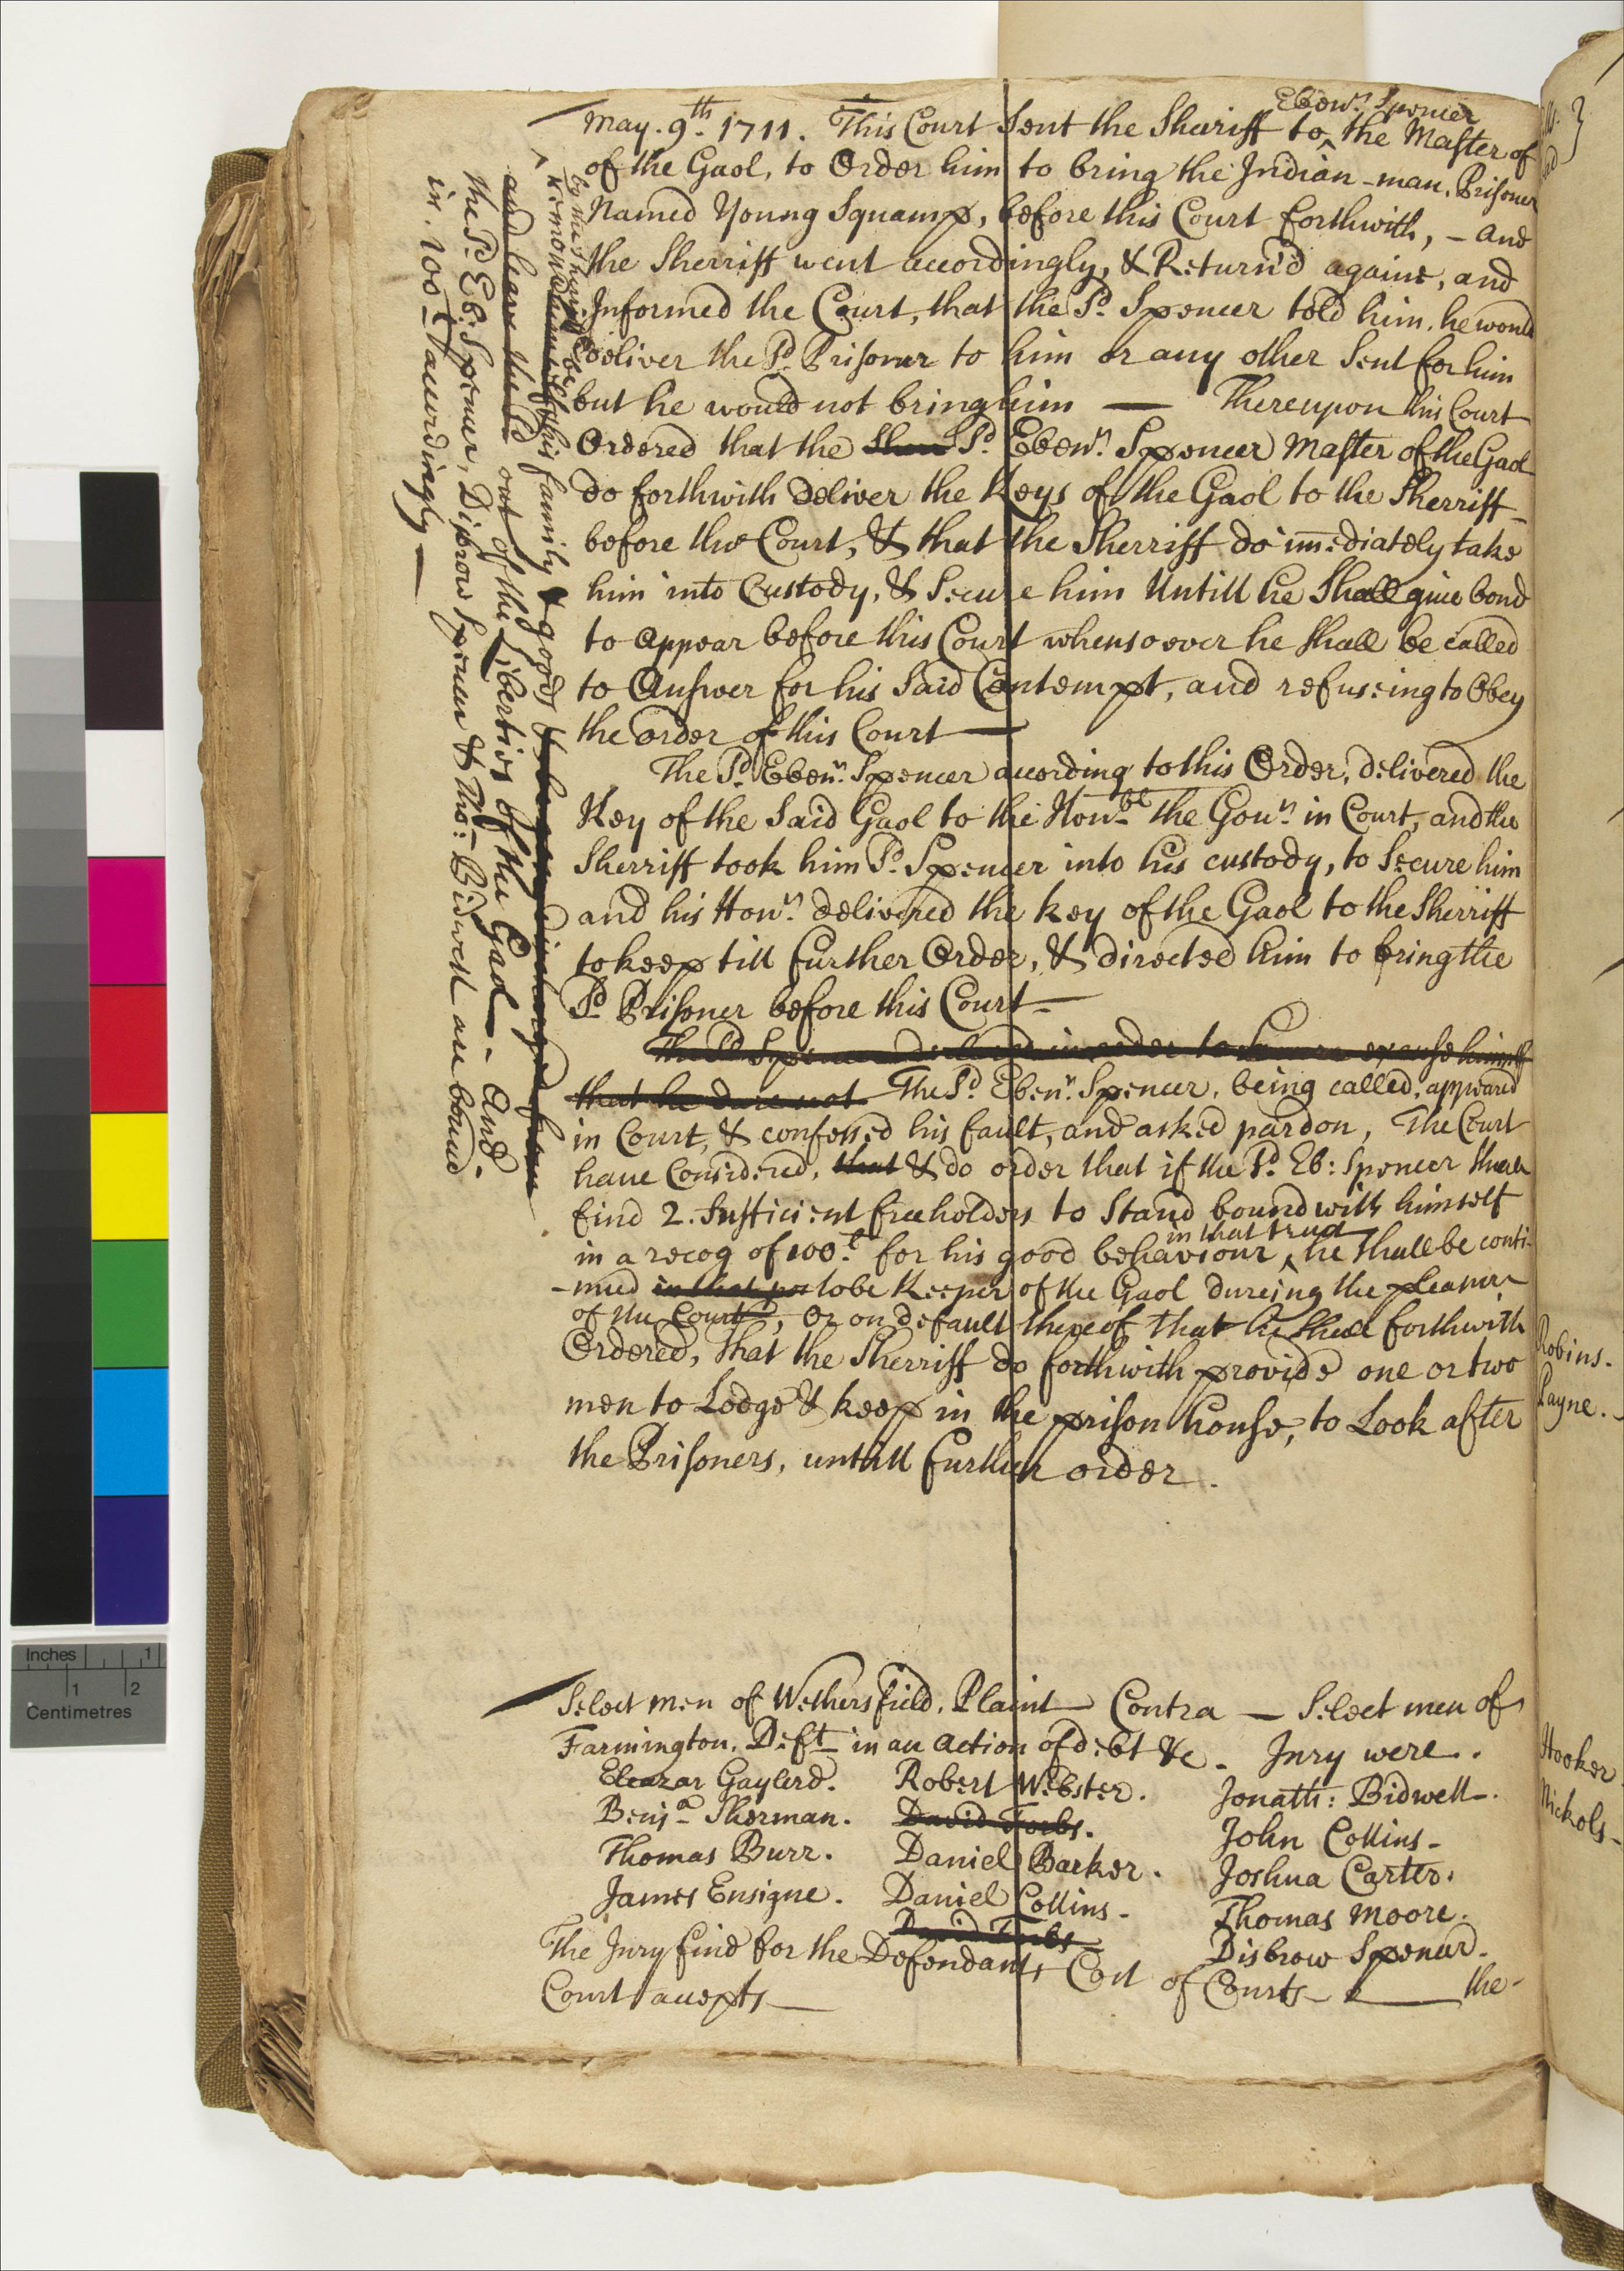 Ebenr. Spencer
May. 9th. 1711. This Court Sent the Sheriff to ^ the Master of
of the Gaol, to Order him to bring the Indian-man, Prisoner
Named Young Squamp, before this Court forthwith, - and
the Sherriff went accordingly, & Return'd againe, and
Informed the Court, that the Sd. Spencer told him, he would
deliver the Sd. Prisoner to him or any other Sent for him
but he would not bring him — Thereupon this Court
Ordered that the Sd. Ebenr. Spencer Master of the Gaol
do forthwith deliver the Keys of the Gaol to the Sherriff
before the Court, & that the Sherriff do imediately take
him into Custody, & Secure him Untill he Shall give bond
to Appear before this Court whensoever he Shall be called
to Answer for his Said Contempt, and refuseing to Obey
the order of this Court —
The Sd. Ebenr. Spencer according to this Order, delivered the
Key of the Said Gaol to the Honrbl the Gour. in Court, and the
Sherriff took him Sd. Spencer into his custody, to Secure him
and his Honr. delivered the key of the Gaol to the Sherriff
to keep till further Order, & directed him to bring the
Sd. Prisoner before this Court —
The Sd Spencer in order to excuse himself
that he dare not The Sd. Ebenr. Spencer, being called, appeared
in Court, & confessed his fault, and asked pardon, The Court
have Considered, that & do order that if the Sd. Eb: Spencer shall
find 2. Sufficient freeholders to Stand bound with himself
in that trust
in a recog of 100.l for his good behaviour ^ he shall be conti-
-nued to be Keeper of the Gaol dureing the pleasure
of the Court, Or on default thereof that he shall forthwith
Ordered, That the Sherriff do forthwith provide one or two
men to Lodge & keep in the prison house, to Look after
the Prisoners, untill further order.
^ by the Sherriff be
remoued his family & goods & be discharged from
and leave the sd out of the Liberties of the Gaol - And
the Sd. Eb: Spencer, Disbrow Spencer & Tho: Bidwell are bound
in. 100-l accordingly —
Select men of Wethersfield, Plaint Contra — Select men of
Farmington. Deft in an action of debt &c. Jury were.
Eleazar Gaylerd. Robert Webster. Jonath: Bidwell.
Benja Sherman. David Forbs. John Collins-
Thomas Burr. Daniel Barker. Joshua Carter.
James Ensigne. Daniel Collins- Thomas Moore.
David Forbs Disbrow Spencer.
The Jury find for the Defendants Cost of Courts- the-
Court accepts —
Robins.
Payne.
Hooker
Nickols-